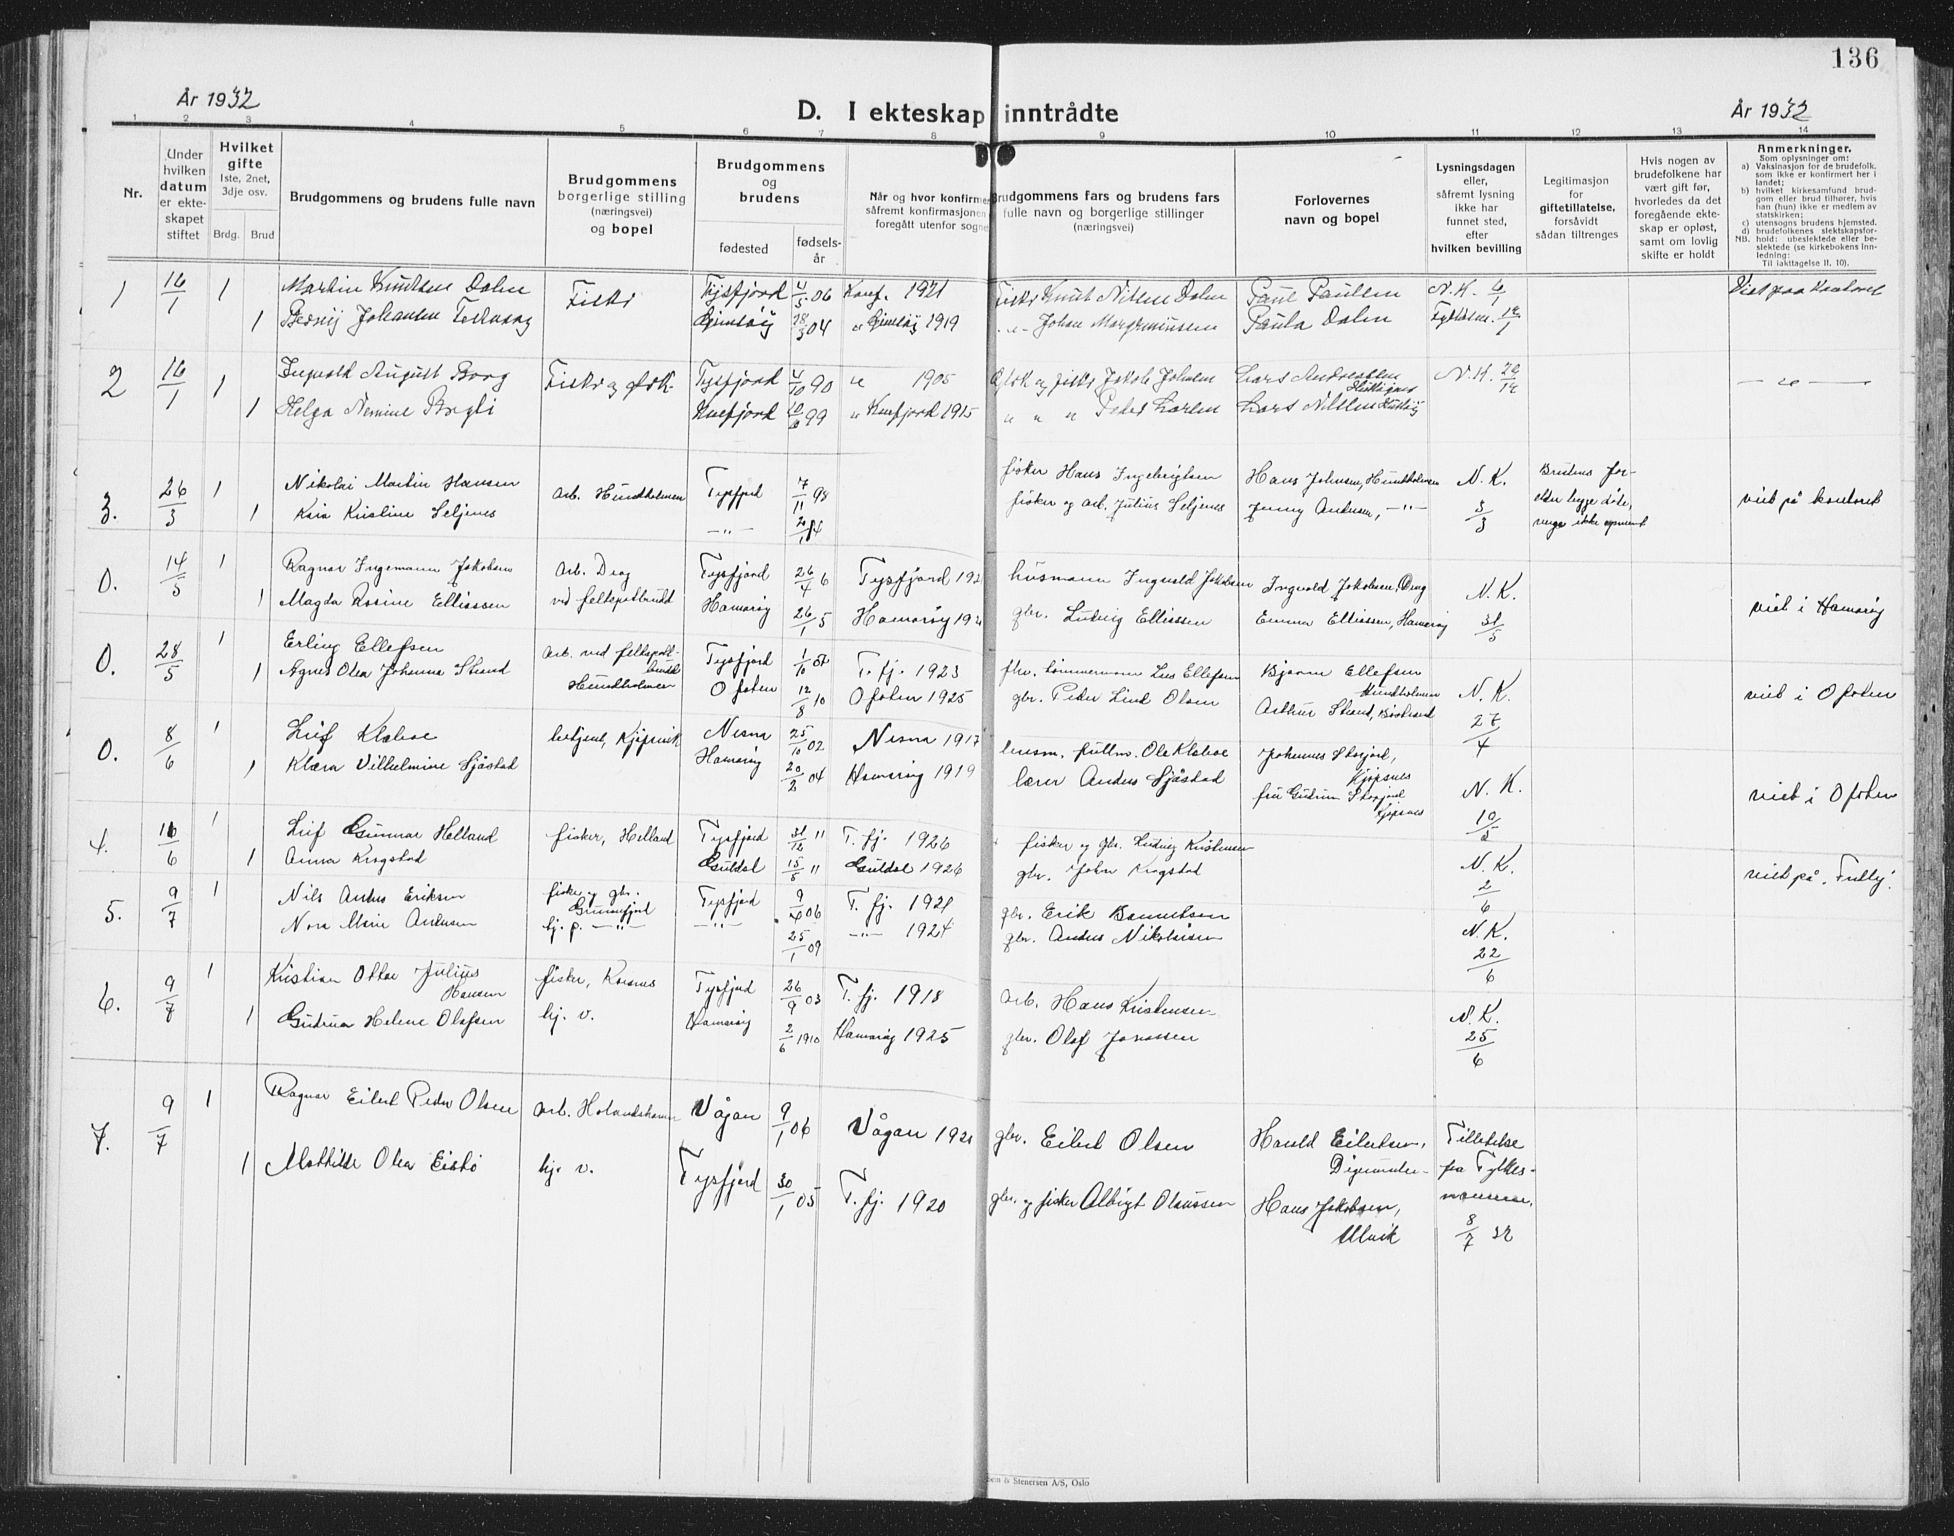 136
År 1932
D. I ekteskap inntrådte
År 1932
1 2 3 4 5 6 7 8 9 10 11 12 13 14
Nr.
Under hvilken datum er ekteskapet stiftet
Hvilket gifte
1ste, 2net, 3dje osv.
Brdg. Brud
Brudgommens og brudens fulle navn
Brudgommens borgerlige stilling (næringsvei) og bopel
Brudgommens og brudens
fødested
fødselsår
Når og hvor konfirme
såfremt konfirmasjonen
foregått utenfor sogne
Brudgommens fars og brudens fars
fulle navn og borgerlige stillinger
(næringsvei)
Forlovernes navn og bopel
Lysningsdagen eller, såfremt lysning ikke har funnet sted, efter hvilken bevilling
Legitimasjon for giftetillatelse, forsåvidt sådan tiltrenges
Hvis nogen av brudefolkene har vært gift før, hvorledes da det foregående ekteskap er opløst, samt om lovlig skifte er holdt
Anmerkninger.
Som oplysninger om:
a) Vaksinasjon for de brudefolk. som ikke er konfirmert her i landet;
b) hvilket kirkesamfund brudgom eller brud tilhører, hvis han (hun) ikke er medlem av statskirken;
c) utensogns brudens hjemsted.
d) brudefolkenes slektskapsforhold: ubeslektede eller beslektede (se kirkebokens innledning:
NB. Til iakttagelse II. 10).
1 16/1 1 Martin Knutsen Dalen Fisker Tysfjord 4/5 06 Konf. 1921 Fisker Knut Nilsen Dalen Paul Paulsen N.K. 6/1 Viet paa Kontoret
1 Johansen Gimsøy 18/3 04 " Gimsøy 1919 " Johan Paula Dalen
2 16/1 1 August Borg Fisker og Tysfjord 4/10 90 " 1905 og fisker Jakob Johnsen Lars Andreassen N.K. — " —
1 Helga Nermine 99 " 1915 " " " Peder Larsen Lars Nilsen
3. 26/3 1 Nikolai Martin Hansen arb. Hundholmen Tysfjord 7/11 98 fisker Hans Ingebrigtsen Hans Johnsen, Hundholmen N.K. 3/3 Brudens for- viet på kontoret
1 Kaia Kristine Seljenes —"— fisker og arb. Julius Seljenes Jenny Andersen, —"— eldre begge døde,
verge ikke opnevnt
0. 14/5 1 Ragnar Ingemann Jakobsen arb. Drag Tysfjord 26/4 6 Tysfjord 192 husmann Ingvald Jakobsen Ingvald Jakobsen, Drag N.K. 31/5 viet i Hamarøy
1 Magda Rosine Elliassen ved feltspatbrudd Hamarøy 26/1 5 Hamarøy 192 gbr. Ludvig Elliassen Emma Elliassen, Hamarøy
0. 28/5 1 Erling Ellefsen arb. ved feltspatbrudd Tysfjord T. fj. 1923 Ellefsen Bjarne Ellefsen N.K. 27/4 viet i Ofoten
Hundholmen
1 Agnes Olea Johanna Strand Hundholmen Ofoten 12/8 10 Ofoten 1925 gbr. Peder Lind Olsen Arthur Strand,
0. 8/6 1 Leif Klæboe betjent, Kjøpsvik Nesna 25/10 02 Nesna 1917 Ole Klæboe Johannes Storjord, N.K. 10/5 viet i Ofoten
Kjøpsnes
1 Klara Vilhelmine Sjåstad Hamarøy 20/2 04 Hamarøy 1919 lærer Anders Sjåstad fru Gudrun Storjord
Kjøpsnes
4. 16/6 1 Leif Gunnar Helland fisker, Helland Tysfjord 31/12 11 T. fj. 1926 fisker og gbr. Ludvig Kristensen N.K. 2/6 viet på "Fully".
1 Anna Krogstad Guldal 15/5 11 Guldal 1926 gbr. John Krogstad
5. 9/7 1 Nils Anders Eriksen fisker og gbr. Tysfjord 9/4 06 T. fj. 1921 gbr. Erik N.K. 22/6
Nora Marie Andersen hj. p. —"— —"— 25/1 09 —"— 1924 gbr. Anders Nikolaisen
6. 9/7 1 Kristian Ottar Julius fisker, Korsnes Tysfjord 26/9 03 T. fj. 1918 arb. Hans Kristensen N.K. 25/6
Hansen
1 Gudrun Helene Olafsen hj. v. Hamarøy 2/6 1910 Hamarøy 1925 gbr. Olaf Jonassen
7. 9/7 1 Ragnar Eilert Peder Olsen arb. Vågan 9/1 06 Vågan 1921 gbr. Eilert Olsen Harald Eilertsen, Tillatelse
Digermulen fra Fylkes-
1 Mathilde Olea hj. v. Tysfjord 30/1 05 T. fj. 1920 gbr. og fisker Albigt Olaussen Hans Jakobsen, mannen,
Ulvik 8/7 32
& Stenersen A/S, Oslo